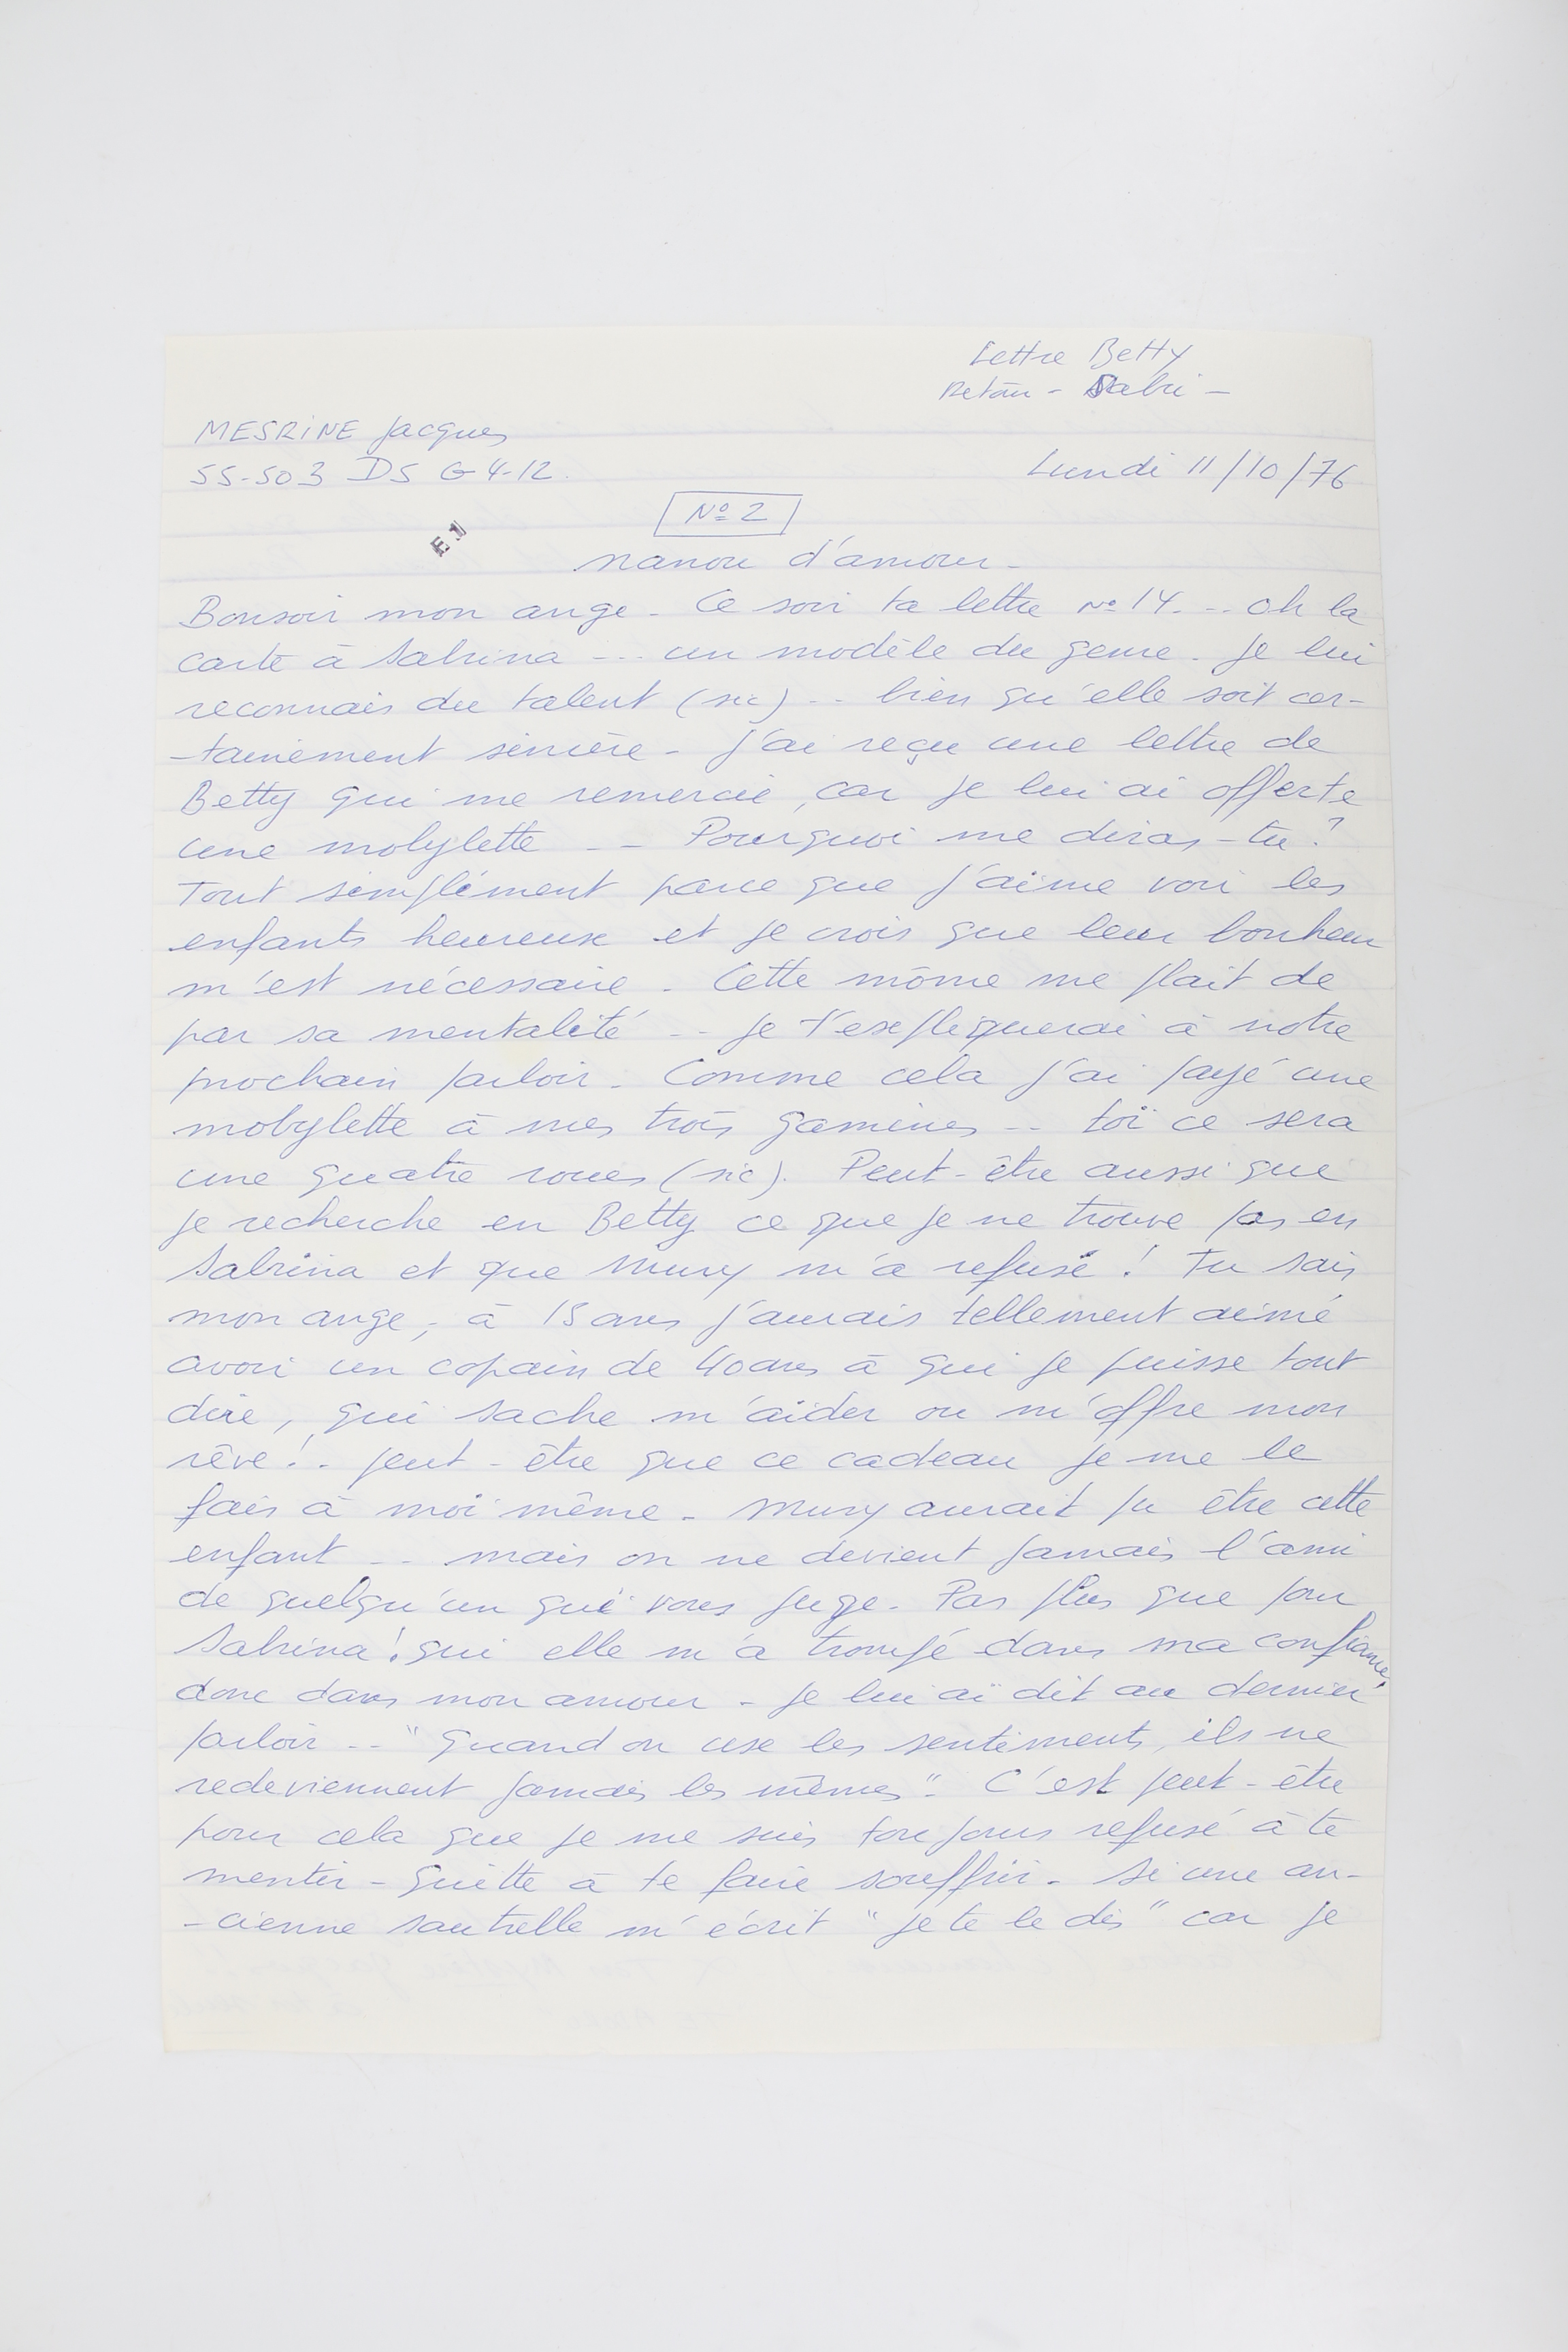 Lettre Betty
Retour - Sabri -
MESRINE Jacques
55-503 DS G 4-12.
Lundi 11/10/76
No 2
E 1
nanou d'amour -
Bonsoir mon ange - Ce soir ta lettre No 14. -- oh la
carte à Sabrina --- un modèle du genre. Je lui
reconnais du talent (sic) -- bien qu'elle soit cer-
-tainement sincère - J'ai reçu une lettre de
Betty qui me remercie, car je lui ai offerte
une mobylette -- Pourquoi me diras-tu ?
Tout simplement parce que j'aime voir les
enfants heureux et je crois que leur bonheur
m'est nécessaire - Cette môme me plait de
par sa mentalité -- je t'expliquerai à notre
prochain parloir - Comme cela j'ai payé une
mobylette à mes trois gamines -- toi ce sera
une quatre roues (sic). Peut-être aussi que
je recherche en Betty ce que je ne trouve pas en
Sabrina et que Mury m'a refusé ! Tu sais
mon ange, à 15 ans j'aurais tellement aimé
avoir un copain de 40 ans à qui je puisse tout
dire, qui sache m'aider ou m'offre mon
rêve !. peut-être que ce cadeau je me le
fais à moi même - Mury aurait pu être cette
enfant -- mais on ne devient jamais l'ami
de quelqu'un qui vous juge - Pas plus que pour
Sabrina ! qui elle m'a trompé dans ma confiance,
donc dans mon amour - Je lui ai dit au dernier
parloir -- "Quand on use les sentiments, ils ne
redeviennent jamais les mêmes". C'est peut-être
pour cela que je me suis toujours refusé à te
mentir - Quitte à te faire souffrir - Si une an-
-cienne sautrelle m'écrit "je te le dis" car je